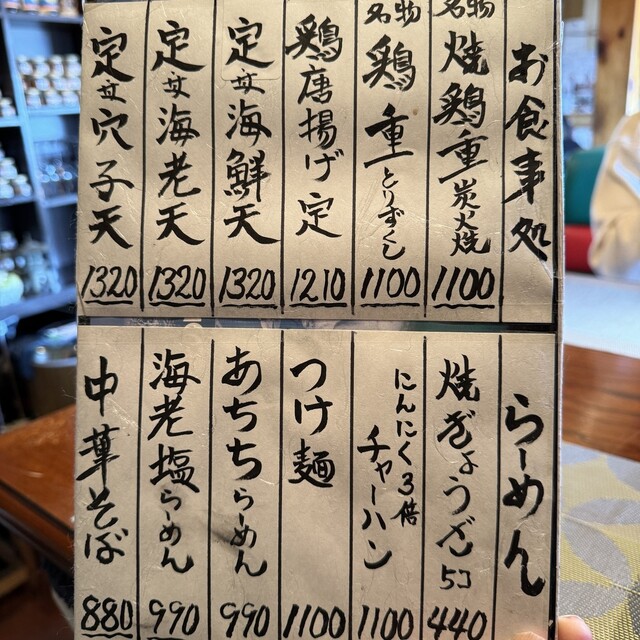 お食事処
名物 焼鶏重 炭火焼 1100
名物 鶏重 とりずくし 1100
鶏唐揚げ定 1210
定丼 海鮮天 1320
定丼 海老天 1320
定丼 穴子天 1320
らーめん
焼ぎょうざ 5コ 440
にんにく3倍 チャーハン 1100
つけ麺 1100
あちちらーめん 990
海老塩らーめん 990
中華そば 880